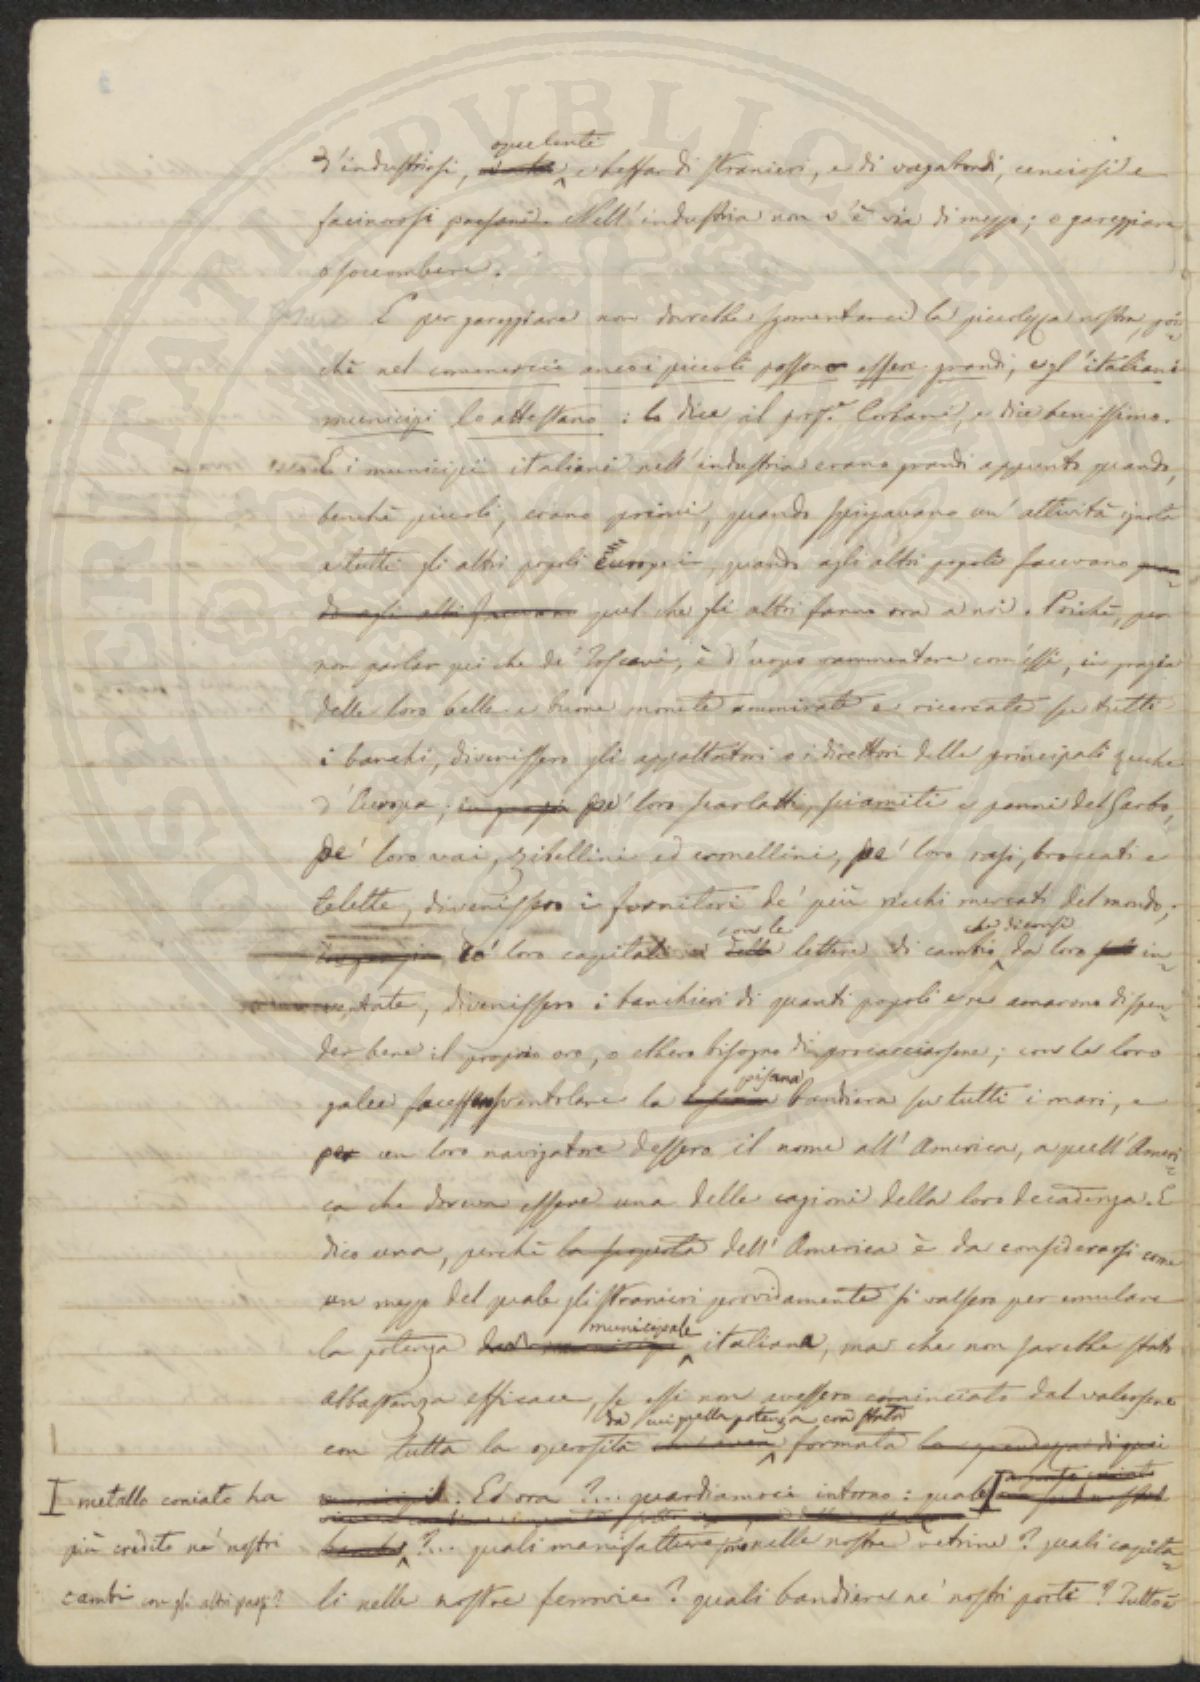 d'industriosi, opulenti e beffardi stranieri, e di vagabondi, cenciosi e
facinorosi paesani. Nell'industria non v'è via di mezzo; o gareggiare
o soccombere.
E per gareggiare non dovrebbe sgomentarci la piccolezza nostra, poi-
chè nel commercio anco i piccoli possono essere grandi, e gl'italiani
municipi lo attestano: lo dice il prof.e Corbani, e dice benissimo.
E i municipi italiani nell'industria erano grandi appunto quando,
benchè piccoli, erano primi, quando spiegavano un'attività ignota
a tutti gli altri popoli Europei, quando agli altri popoli facevano
quel che gli altri fanno ora a noi. Poichè, per
non parlar poi che de' Toscani, è d'uopo rammentare com'essi, in grazia
delle loro belle e buone monete ammirate e ricercate su tutti
i banchi, divenissero gli appaltatori o i direttori delle principali zecche
d'Europa; pe' loro scarlatti, sciamiti e panni del Garbo,
pe' loro vai, zibellini ed ermellini, pe' loro rasi, broccati e
telette, divenissero i fornitori de' più ricchi mercati del mondo;
co' loro capitali e con le lettere di cambio che diconsi da loro in-
ventate, divenissero i banchieri di quanti popoli e re amarono dispen-
der bene il proprio oro, o ebbero bisogno di procacciarsene; con le loro
galee facessero sventolare la pisana bandiera su tutti i mari, e
per un loro navigatore dessero il nome all'America, a quell'Ameri-
ca che doveva essere una delle cagioni della loro decadenza. E
dico una, perchè la scoperta dell'America è da considerarsi come
un mezzo del quale gli stranieri provvidamente si valsero per emulare
la potenza municipale italiana, ma che non sarebbe stato
abbastanza efficace, se essi non avessero cominciato dal valersene
con tutta la operosità da cui quella potenza era stata formata
Ed ora?... guardiamoci intorno: quale
?... quali manifatture nelle nostre vetrine? quali capita-
li nelle nostre ferrovie? quali bandiere ne' nostri porti? Tutto è
metallo coniato ha
più credito ne' nostri
cambi con gli altri paesi?